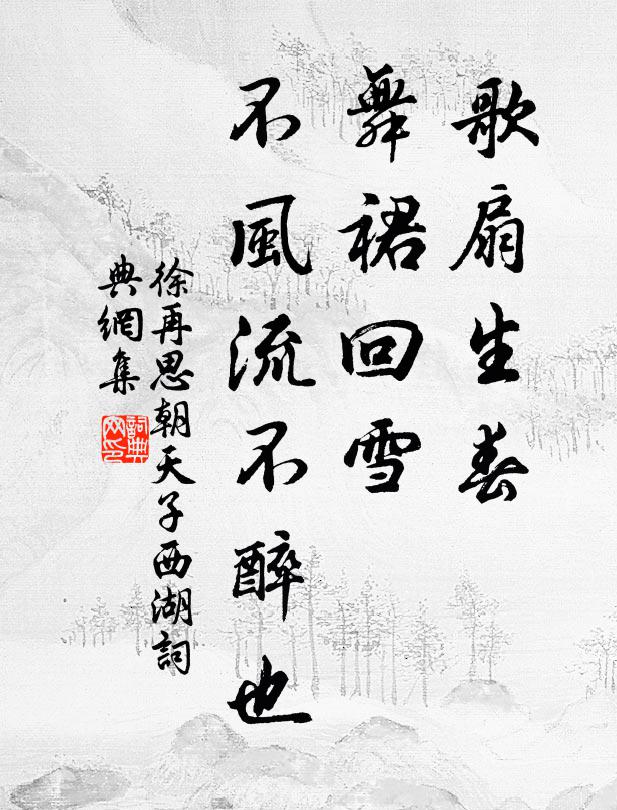 歌扇生春
舞裙回雪
不風流不醉也
徐再思朝天子西湖詞
典網集
詞典網印